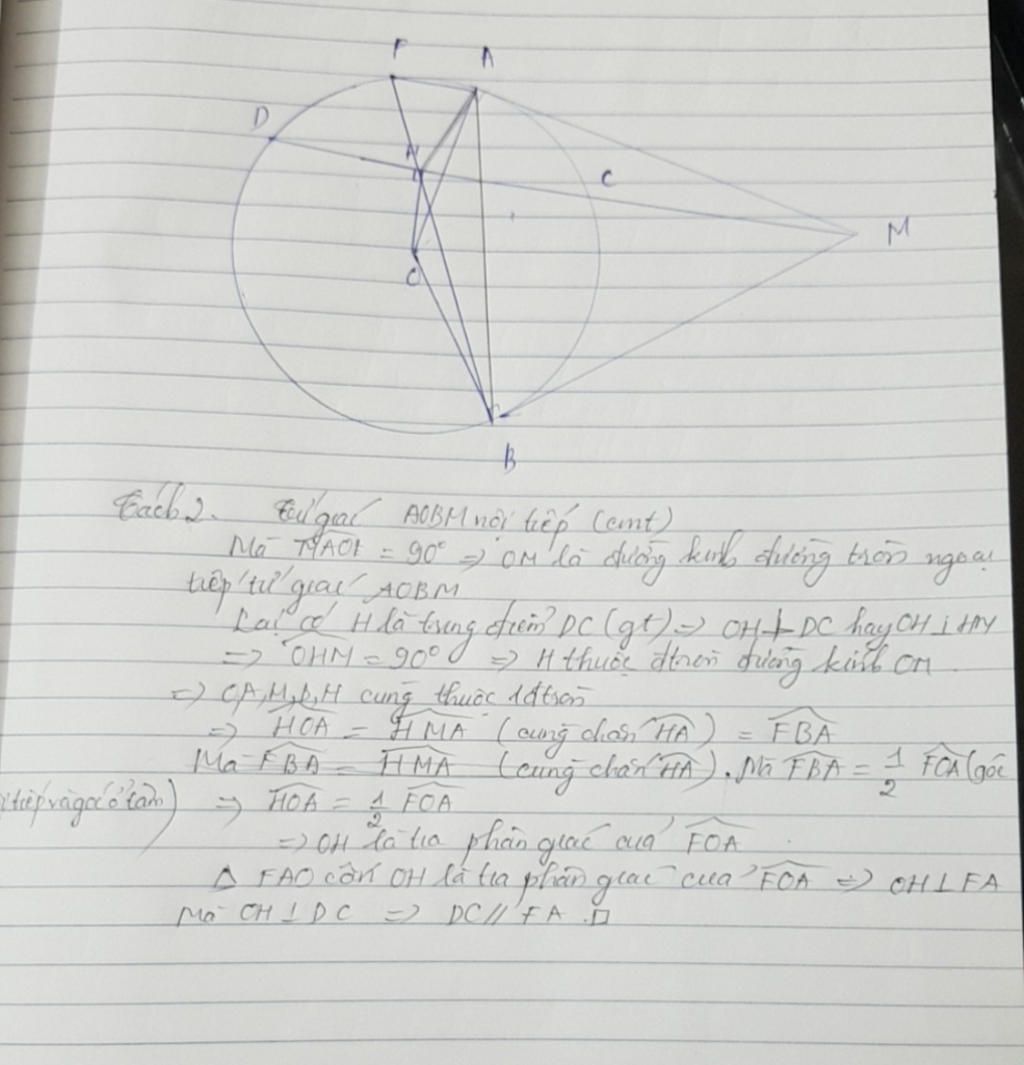 F A
D
H
C
M
O
B
Cách 2. Tứ giác AOBM nội tiếp (cmt)
Mà MAO = 90° => OM là đường kính đường tròn ngoại
tiếp tứ giác AOBM
Lại có H là trung điểm DC (gt) => OH ⊥ DC hay OH ⊥ HM
=> OHM = 90° => H thuộc đtròn đường kính OM
=> O, A, M, B, H cùng thuộc 1 đtròn
=> HOA = HMA (cùng chắn HA) = FBA
Mà FBA = HMA (cùng chắn HA). Mà FBA = 1/2 FOA (góc
tiếp và góc ở tâm) => HOA = 1/2 FOA
=> OH là tia phân giác của FOA.
Δ FAO cân OH là tia phân giác của FOA => OH ⊥ FA
Mà OH ⊥ DC => DC // FA. □